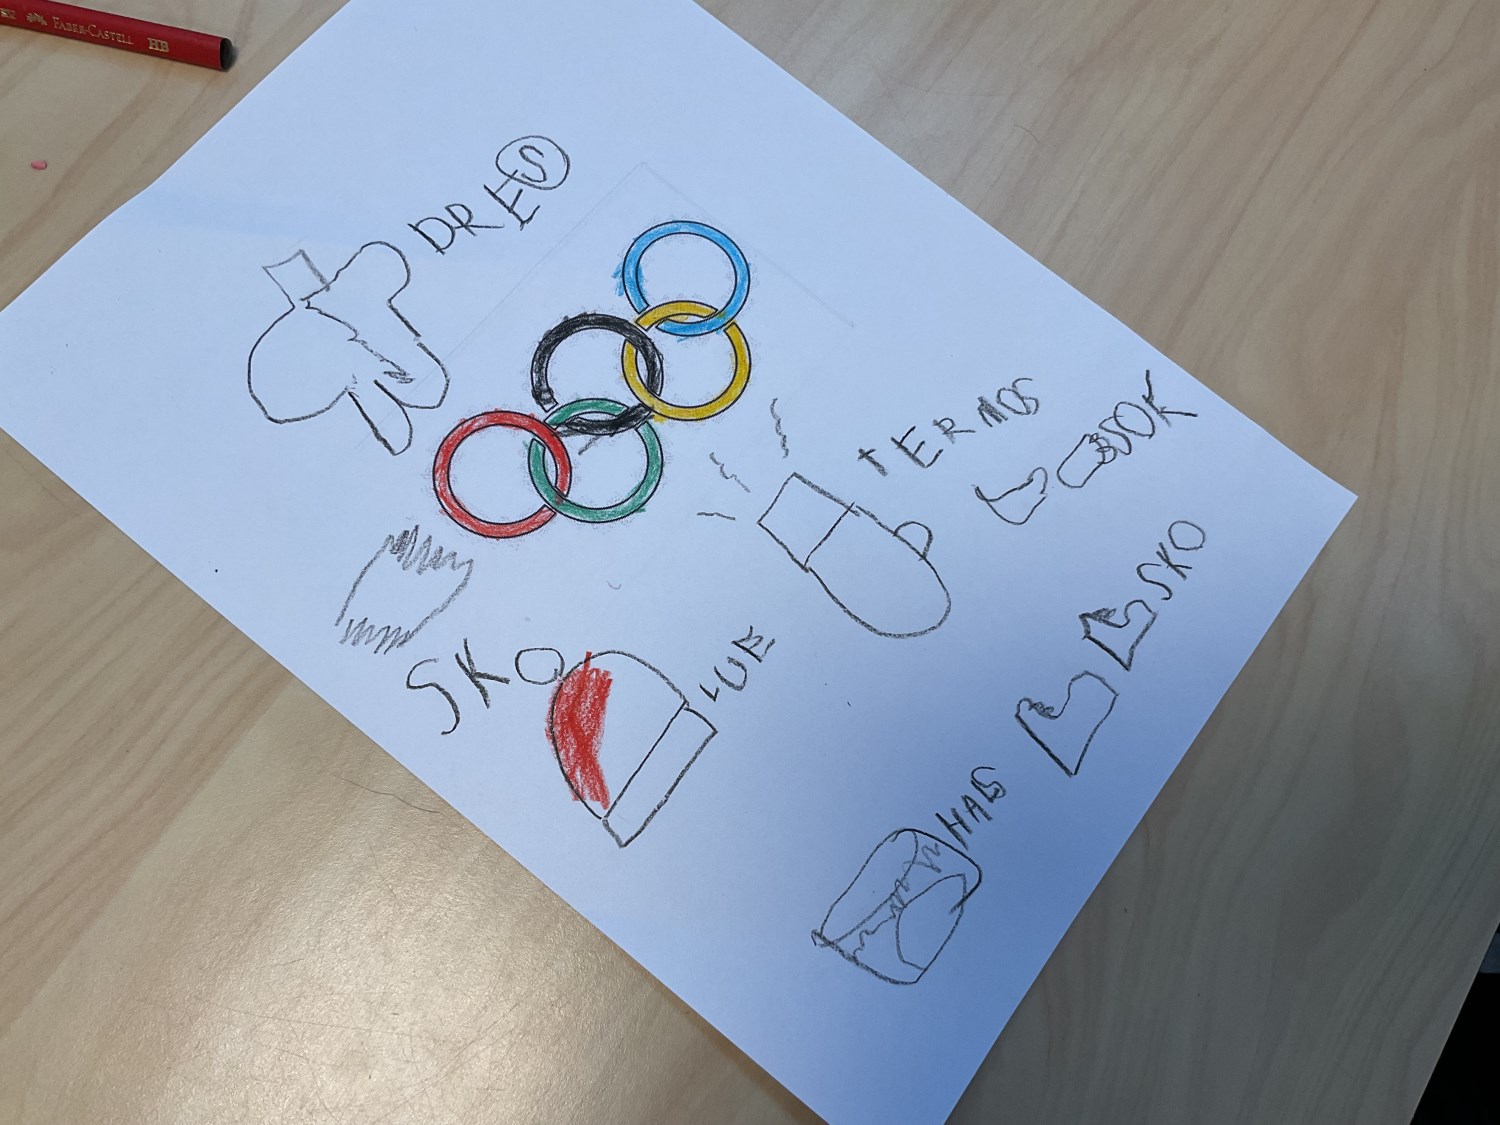 FABER-CASTELL HB
DRES
TERMOS
SOK
SKO
SKO
LUE
HALS